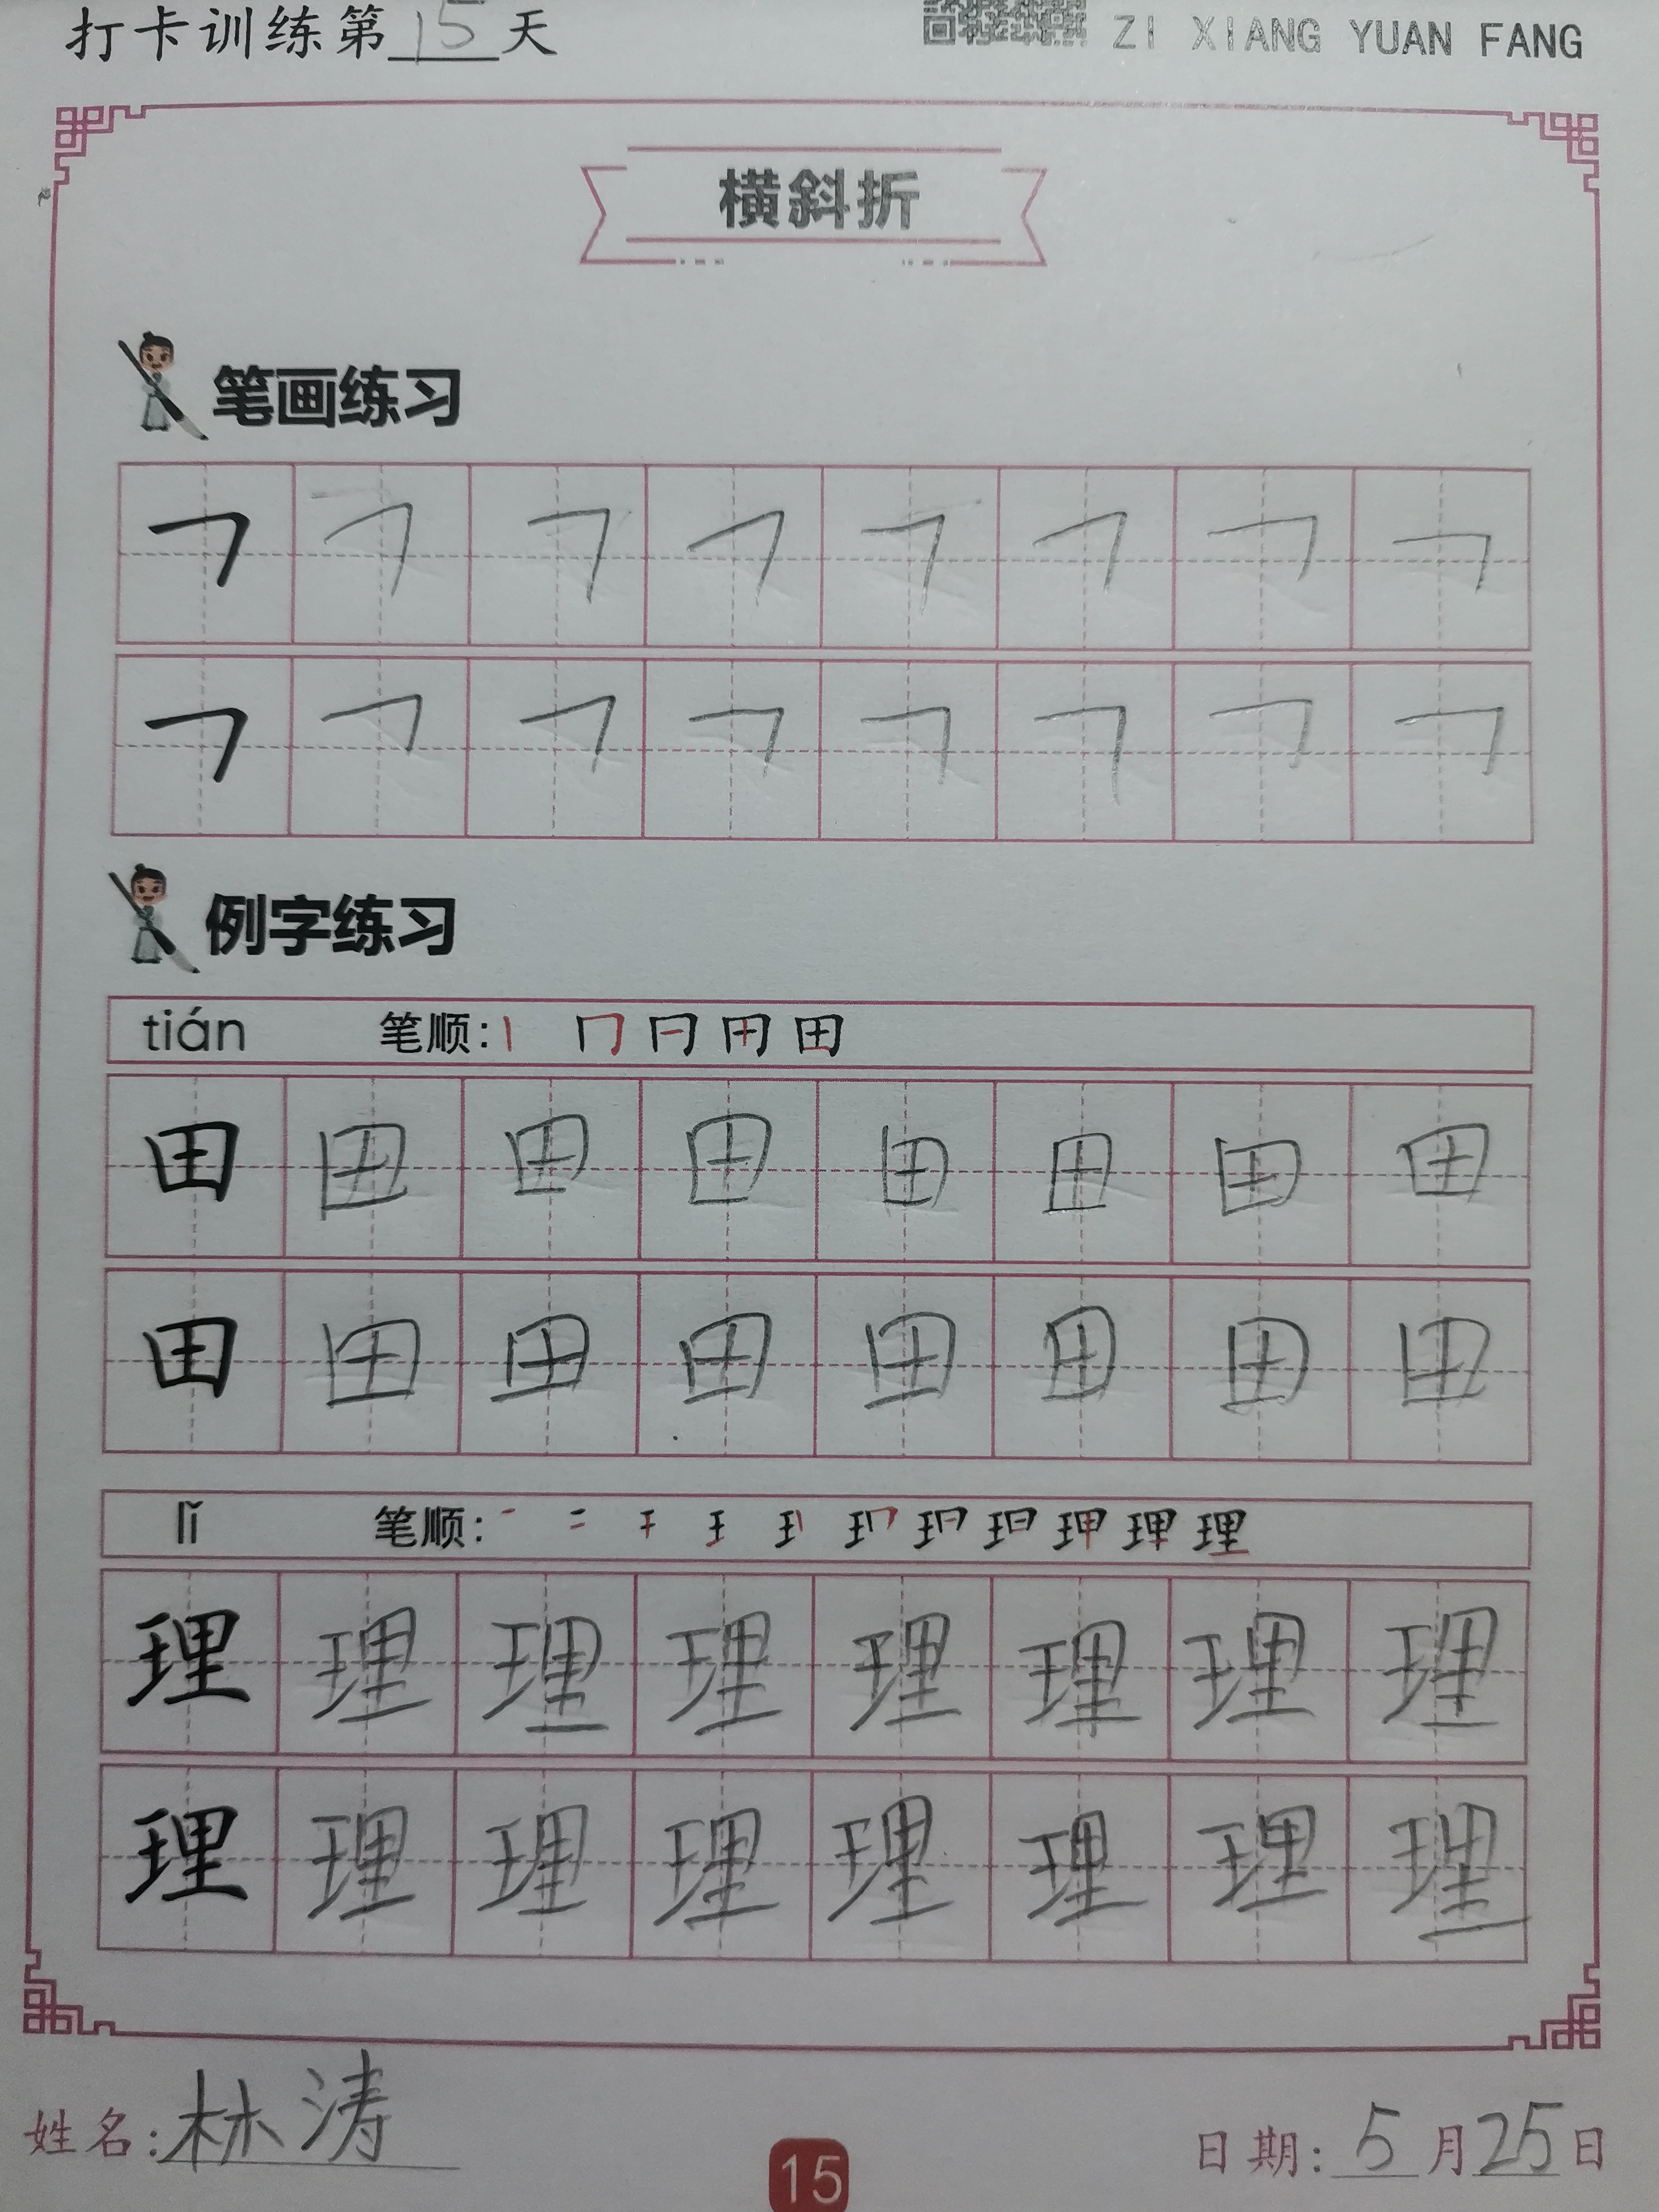 打卡训练第15天 ZI XIANG YUAN FANG
横斜折
笔画练习
㇕ ㇕ ㇕ ㇕ ㇕ ㇕ ㇕ ㇕
㇕ ㇕ ㇕ ㇕ ㇕ ㇕ ㇕ ㇕
例字练习
tián 笔顺: 丨 冂 日 用 田
田 田 田 田 田 田 田 田
田 田 田 田 田 田 田 田
lǐ 笔顺:
理 理 理 理 理 理 理 理
理 理 理 理 理 理 理 理
姓名: 林涛 15 日期: 5月25日